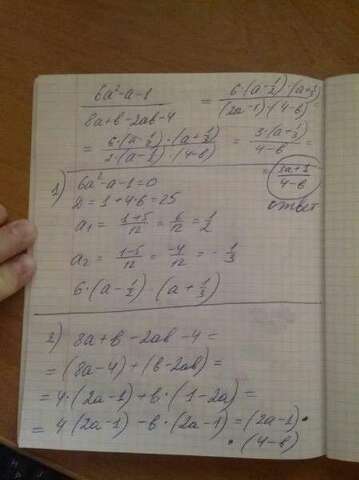 (6a²-a-1)/(8a+b-2ab-4) = (6·(a-1/2)·(a+1/3))/((2a-1)·(4-b)) =
= (6·(a-1/2)·(a+1/3))/(2·(a-1/2)·(4-b)) = (3·(a-1/2))/(4-b) =
= (3a+1)/(4-b)
ответ
1) 6a²-a-1=0
D=1+4·6=25
a₁ = (1+5)/12 = 6/12 = 1/2
a₂ = (1-5)/12 = -4/12 = -1/3
6·(a-1/2)·(a+1/3)
2) 8a+b-2ab-4=
=(8a-4)+(b-2ab)=
=4·(2a-1)+b·(1-2a)=
=4(2a-1)-b·(2a-1)=(2a-1)·
·(4-b)